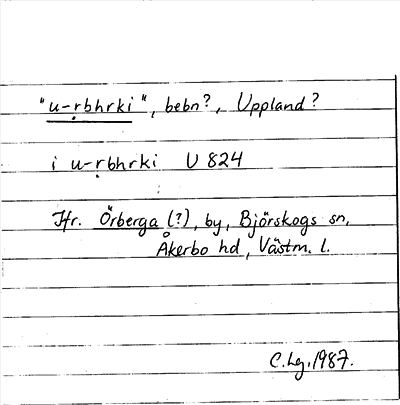 "u-ṛbhrki", bebn?, Uppland?
i u-ṛbhrki U 824
Jfr. Örberga (?), by, Björskogs sn,
Åkerbo hd, Västm. l.
C.Lg, 1987.